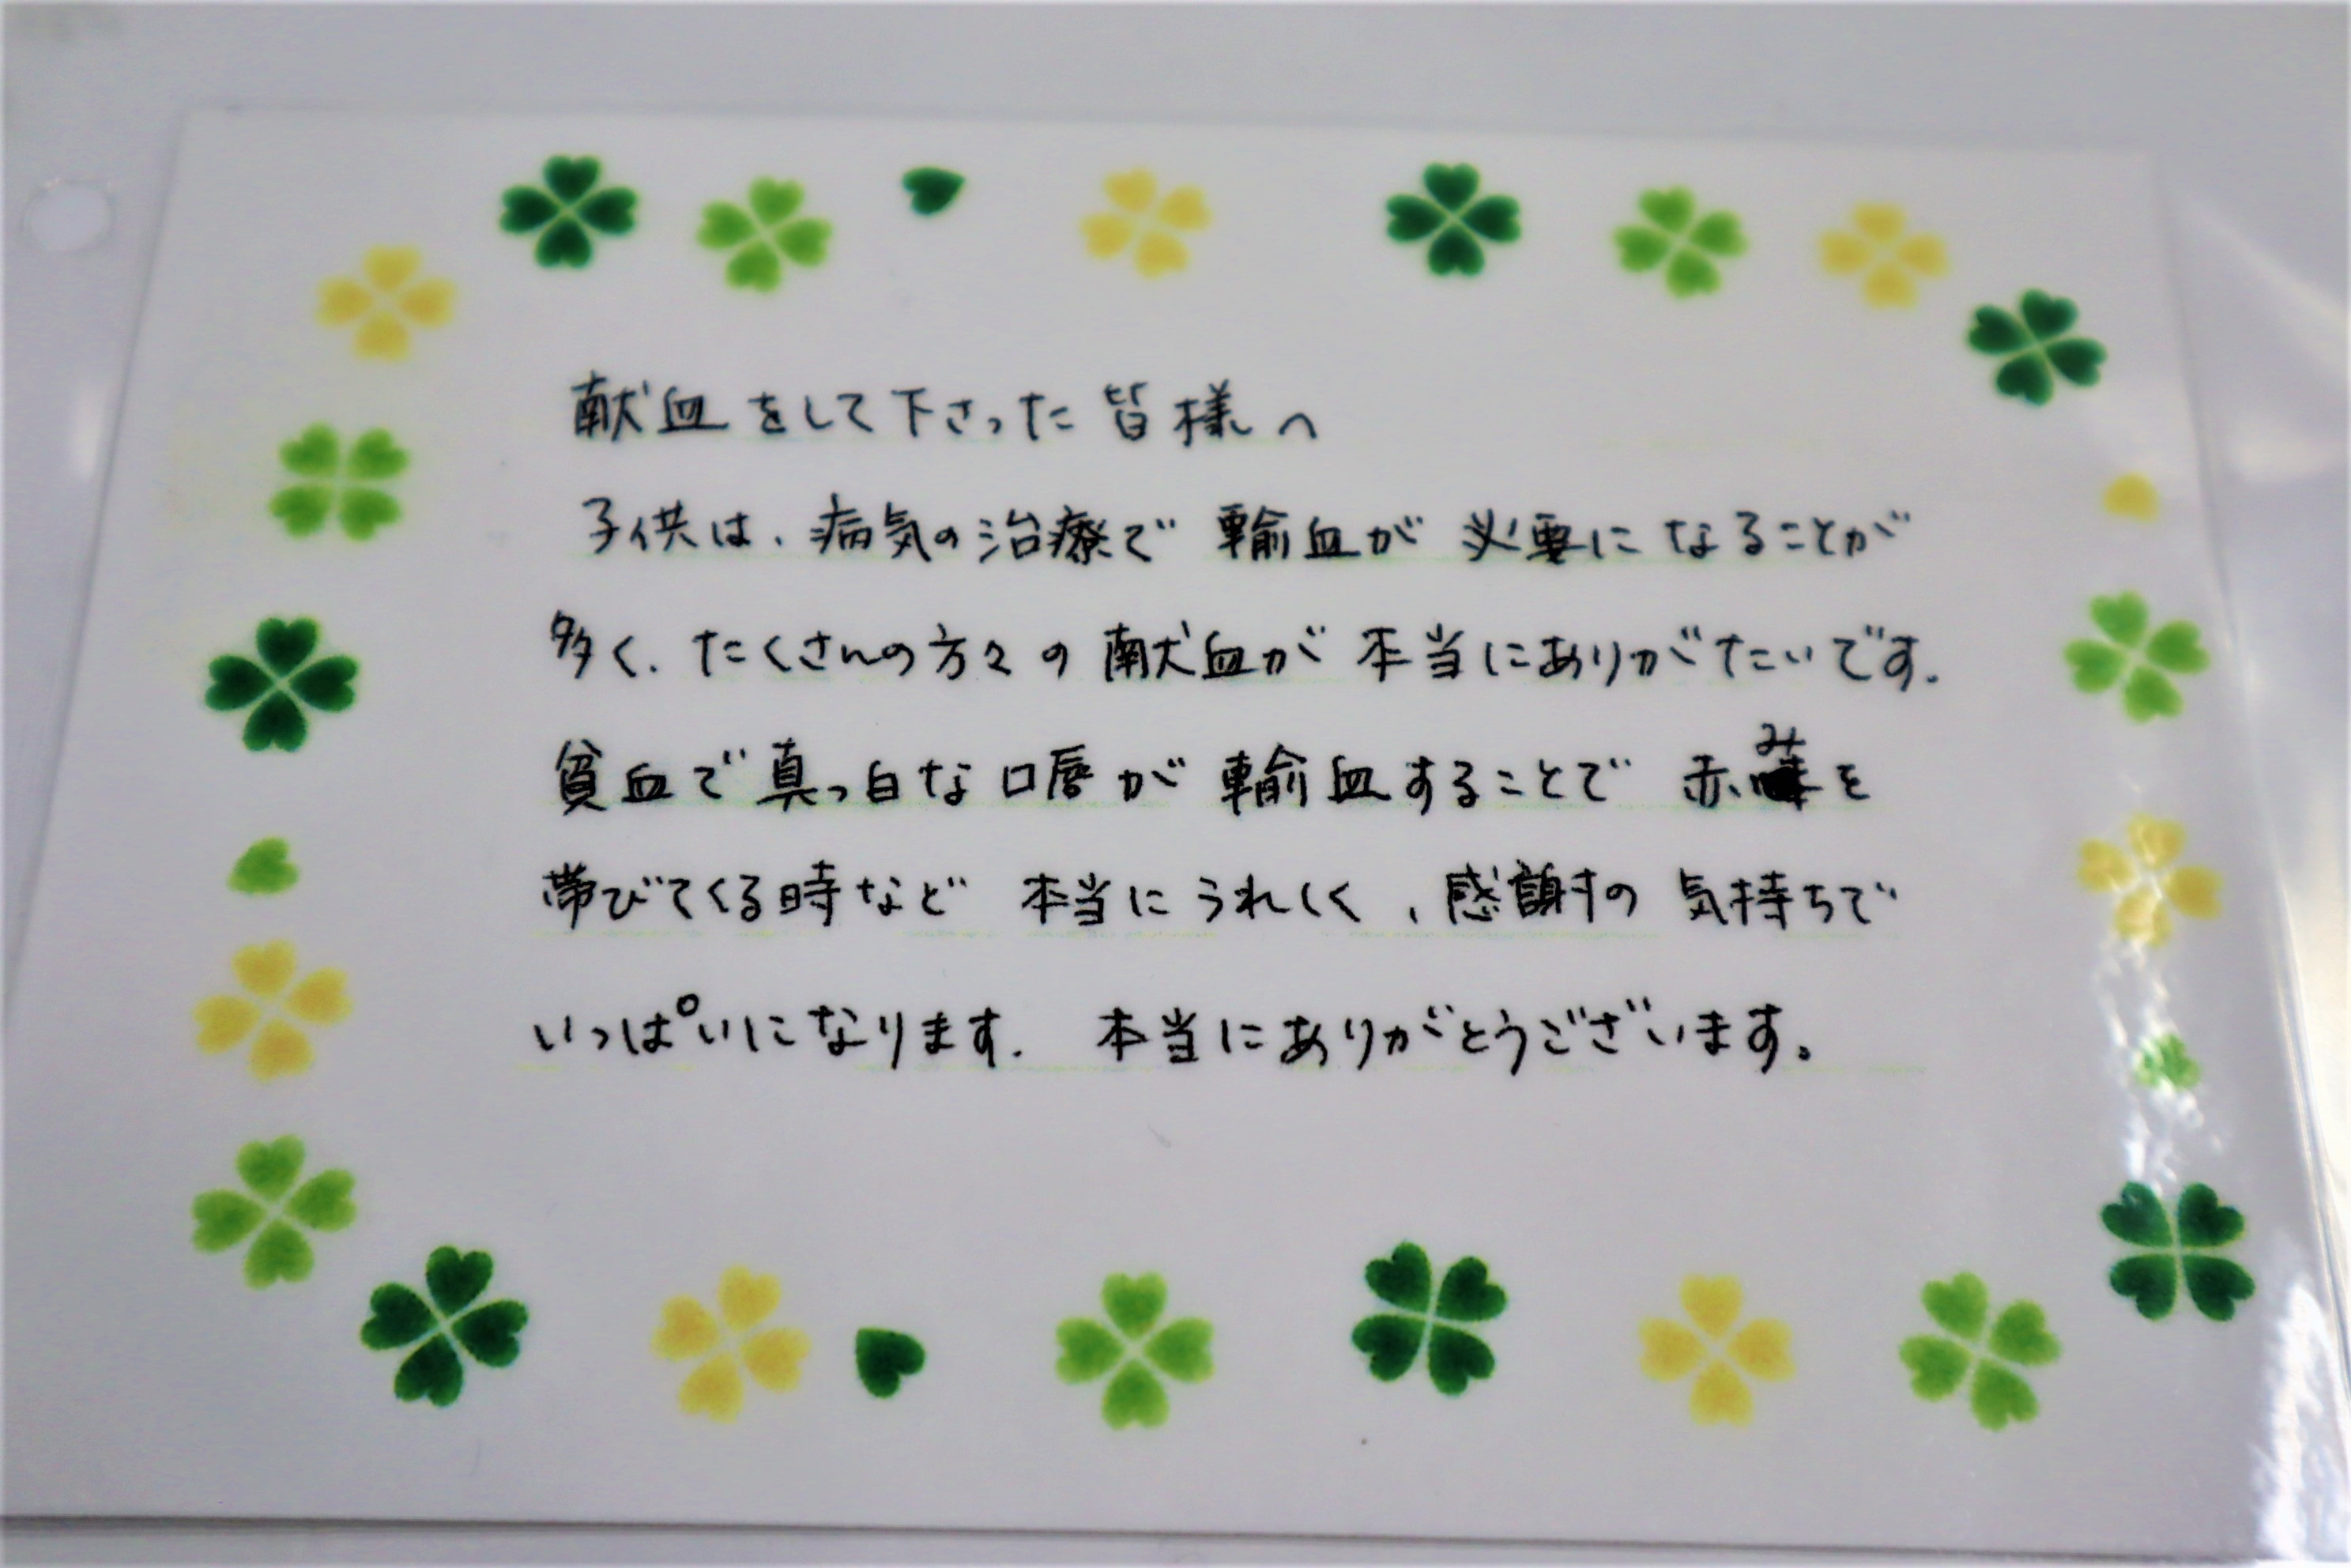 献血をして下さった皆様へ
子供は、病気の治療で輸血が必要になることが
多く、たくさんの方々の献血が本当にありがたいです。
貧血で真っ白な口唇が輸血することで赤みを
帯びてくる時など本当にうれしく、感謝の気持ちで
いっぱいになります。本当にありがとうございます。